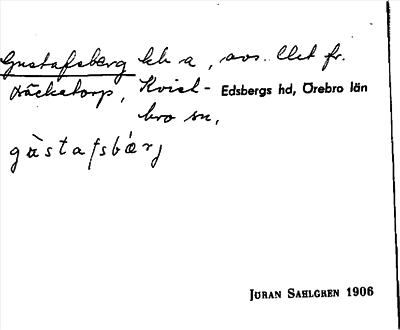 Gustafsberg lh a, avs. Uet fr.
Däckatorp, Kvist- Edsbergs hd, Örebro län
bro sn,
gùstafsbærj
JÖRAN SAHLGREN 1906